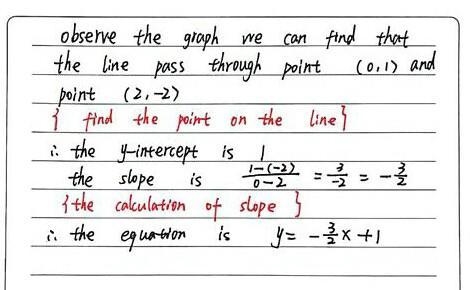 observe the graph we can find that
the line pass through point (0,1) and
point (2,-2)
{ find the point on the line}
∴ the y-intercept is 1
the slope is \frac{1-(-2)}{0-2} = \frac{3}{-2} = -\frac{3}{2}
{the calculation of slope }
∴ the equation is y= -\frac{3}{2}x+1